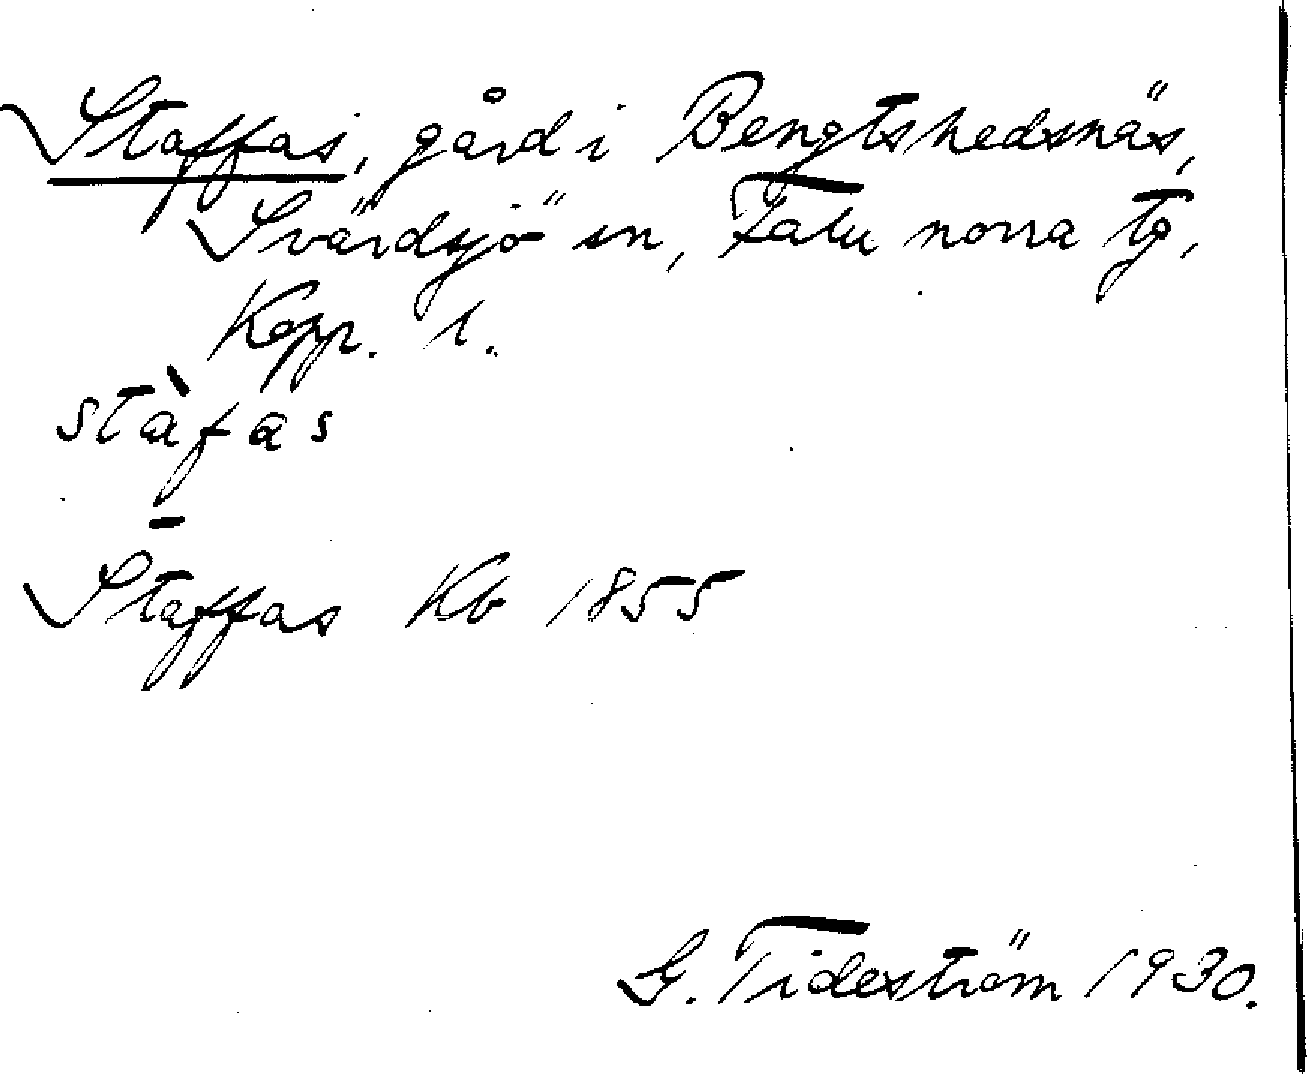 Staffas, gård i Bengtshedsnäs,
Svärdsjö sn, Falu norra tg,
Kopp. l.
stàfas
–
Staffas Kb 1855
G. Tideström 1930.